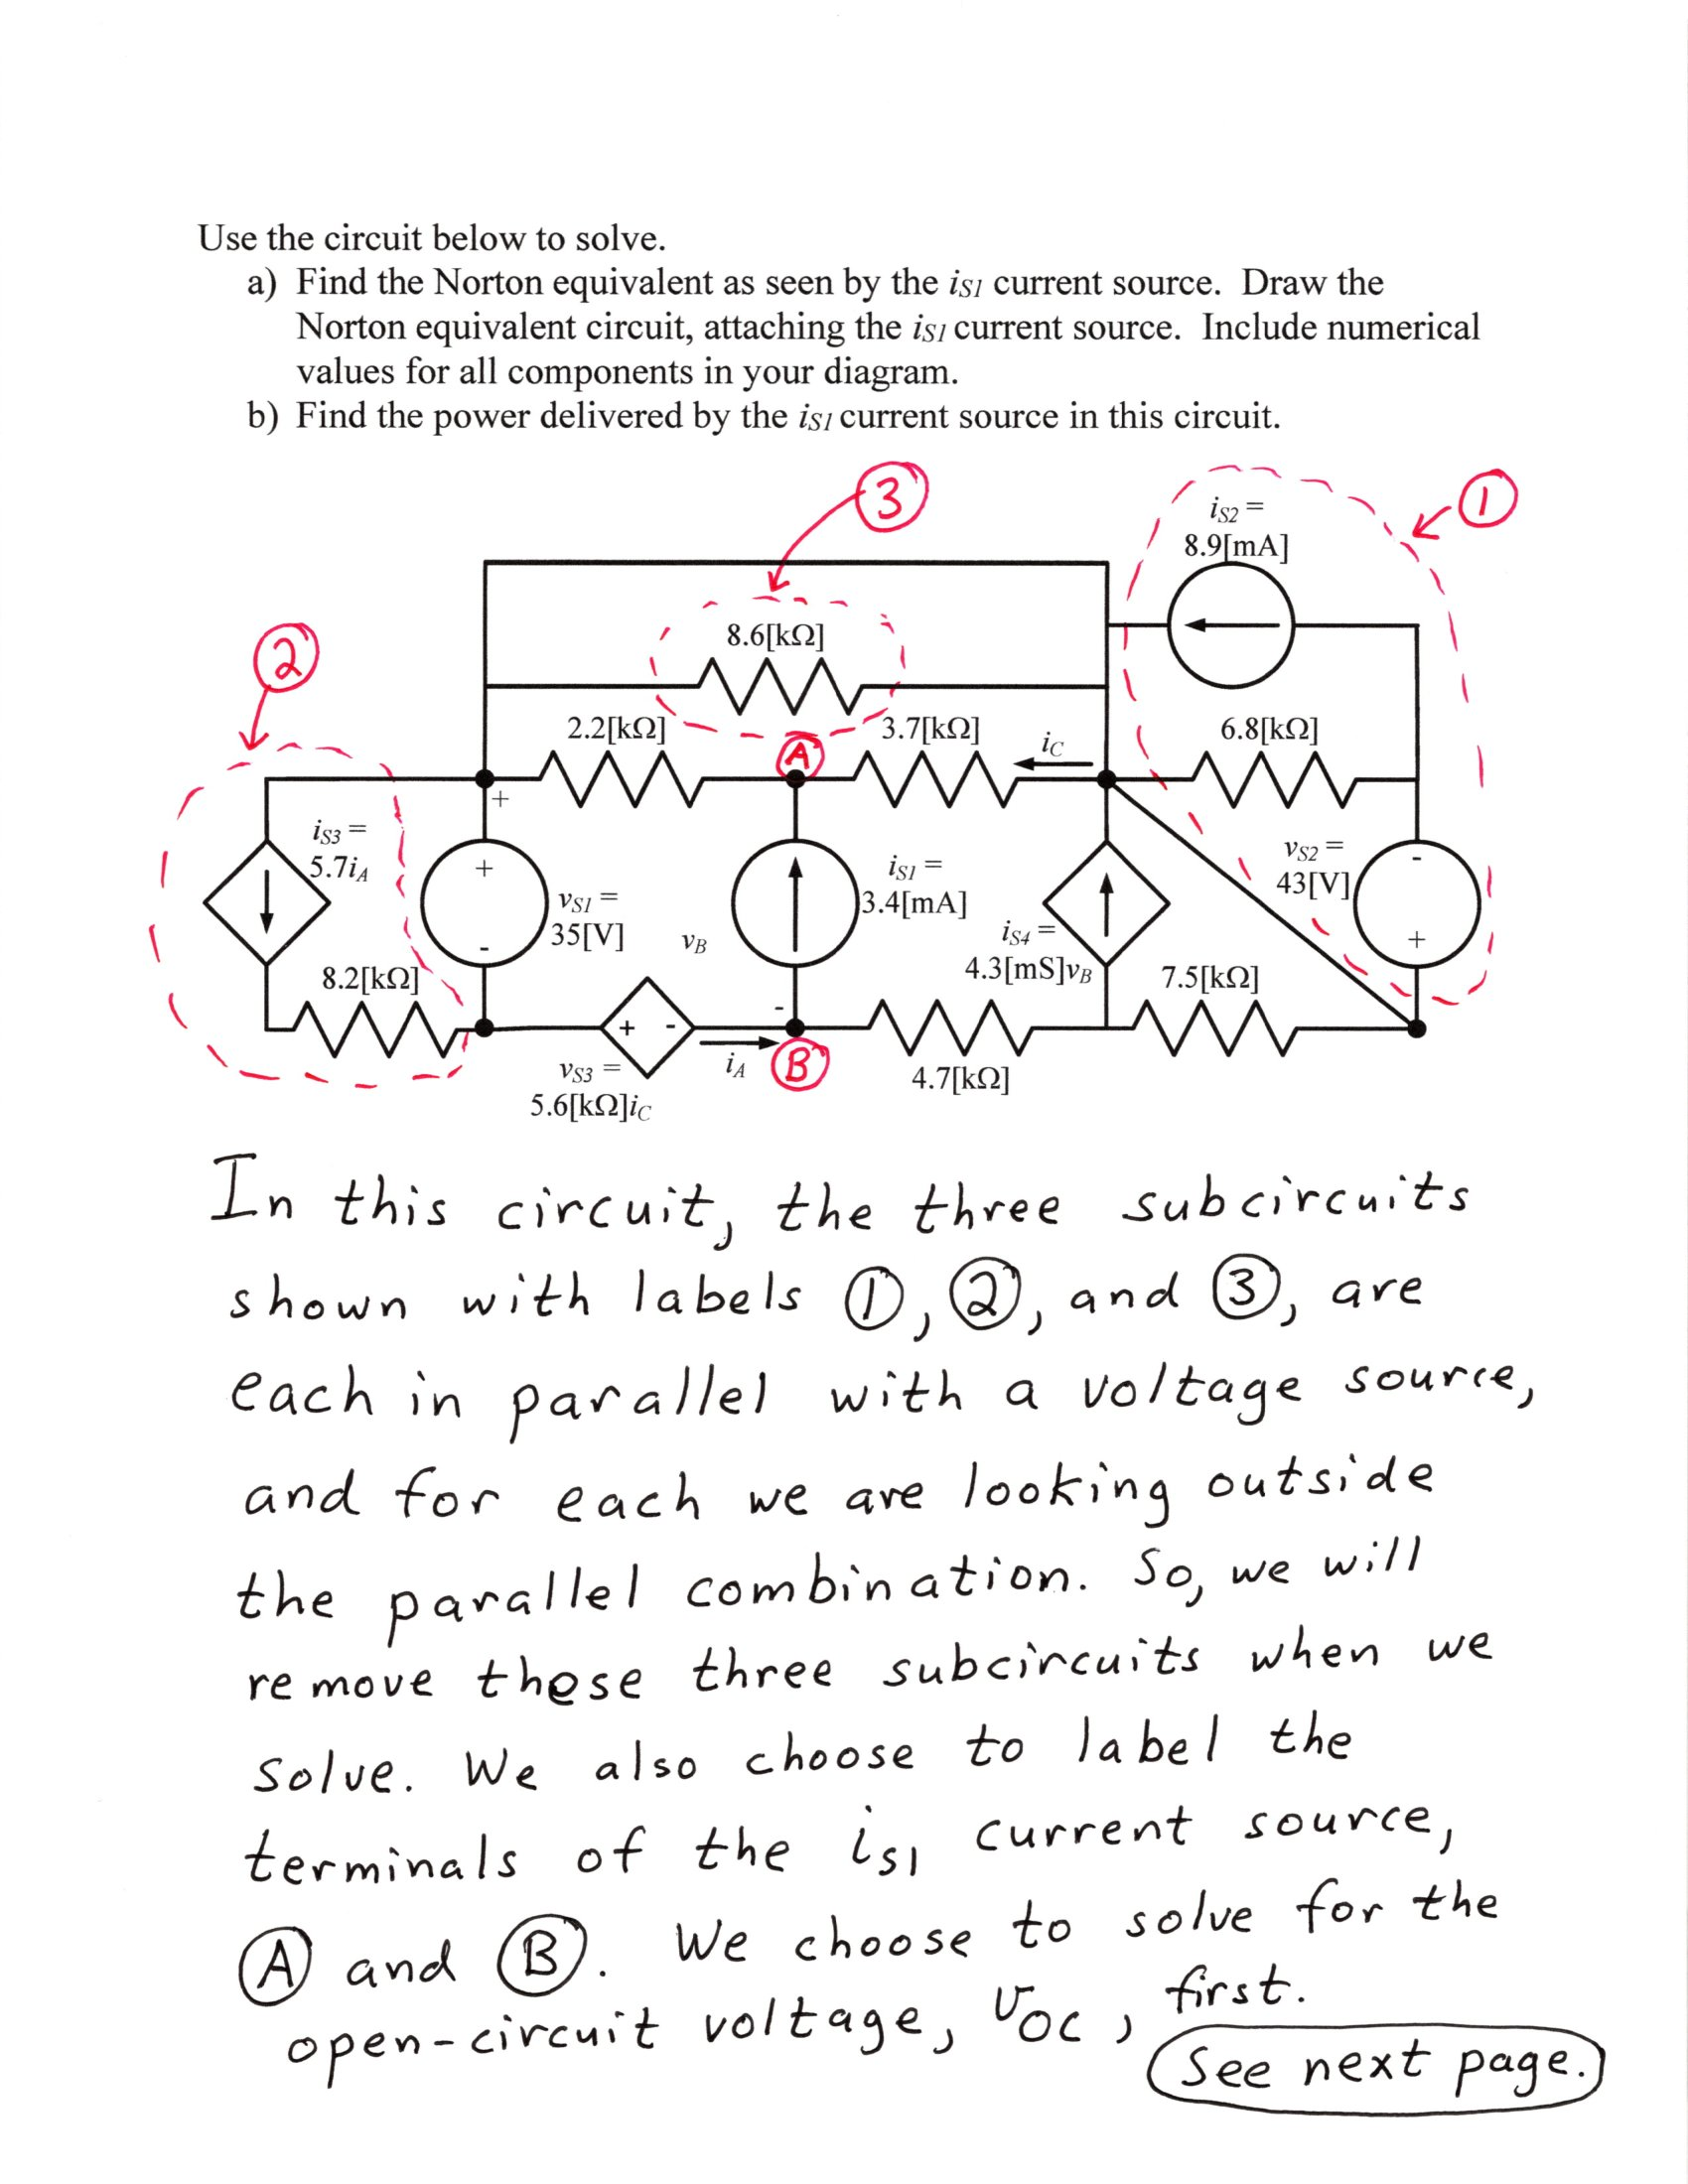 Use the circuit below to solve.
a) Find the Norton equivalent as seen by the iS1 current source. Draw the
Norton equivalent circuit, attaching the iS1 current source. Include numerical
values for all components in your diagram.
b) Find the power delivered by the iS1 current source in this circuit.
3
1
iS2 =
8.9[mA]
2
8.6[kΩ]
2.2[kΩ]
A
3.7[kΩ]
iC
6.8[kΩ]
+
iS3 =
5.7iA
+
-
vS1 =
35[V]
vB
iS1 =
3.4[mA]
iS4 =
4.3[mS]vB
vS2 =
43[V]
-
+
8.2[kΩ]
7.5[kΩ]
-
+ -
vS3 =
5.6[kΩ]iC
iA
B
4.7[kΩ]
In this circuit, the three subcircuits
shown with labels ①, ②, and ③, are
each in parallel with a voltage source,
and for each we are looking outside
the parallel combination. So, we will
remove these three subcircuits when we
solve. We also choose to label the
terminals of the iS1 current source,
Ⓐ and Ⓑ. We choose to solve for the
open-circuit voltage, vOC, first.
See next page.